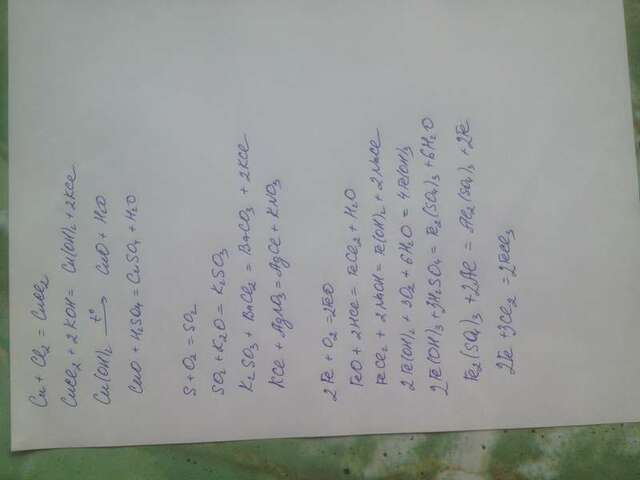 Cu + Cl₂ = CuCl₂
CuCl₂ + 2KOH = Cu(OH)₂ + 2KCl
Cu(OH)₂ —t°→ CuO + H₂O
CuO + H₂SO₄ = CuSO₄ + H₂O
S + O₂ = SO₂
SO₂ + K₂O = K₂SO₃
K₂SO₃ + BaCl₂ = BaCO₃ + 2KCl
KCl + AgNO₃ = AgCl + KNO₃
2Fe + O₂ = 2FeO
FeO + 2HCl = FeCl₂ + H₂O
FeCl₂ + 2NaOH = Fe(OH)₂ + 2NaCl
2Fe(OH)₂ + 3O₂ + 6H₂O = 4Fe(OH)₃
2Fe(OH)₃ + 3H₂SO₄ = Fe₂(SO₄)₃ + 6H₂O
Fe₂(SO₄)₃ + 2Al = Al₂(SO₄)₃ + 2Fe
2Fe + 3Cl₂ = 2FeCl₃